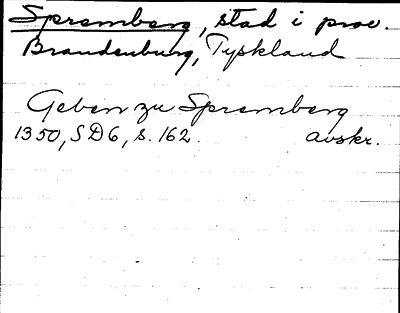 Spremberg, stad i prov.
Brandenburg, Tyskland
Geben zu Spremberg
1350, SD6, s. 162. avskr.